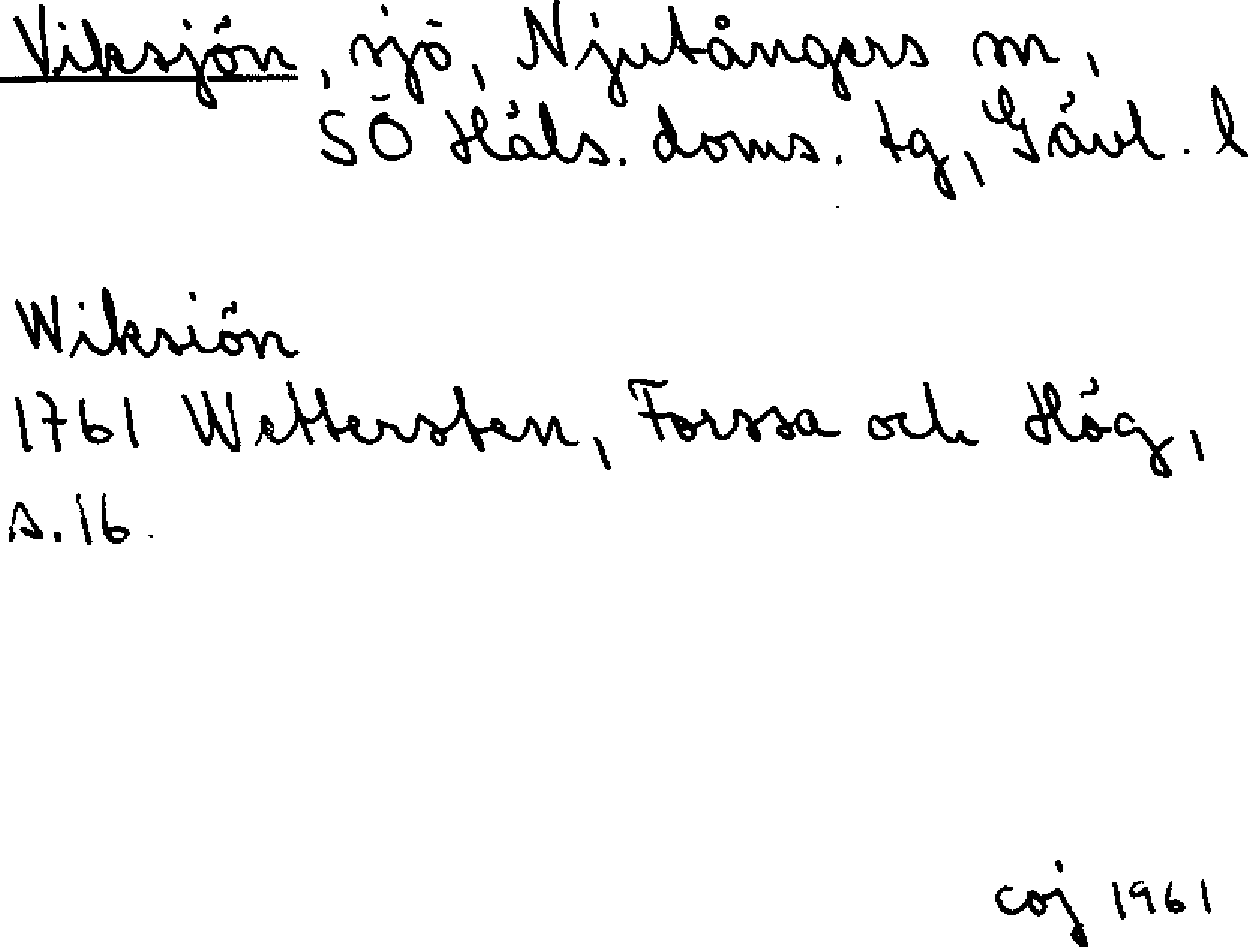 Viksjön, sjö, Njutångers sn,
SÖ Häls. doms. tg, Gävl. l
Wiksiön
1761 Wettersten, Forssa och Hög,
s. 16.
coj 1961